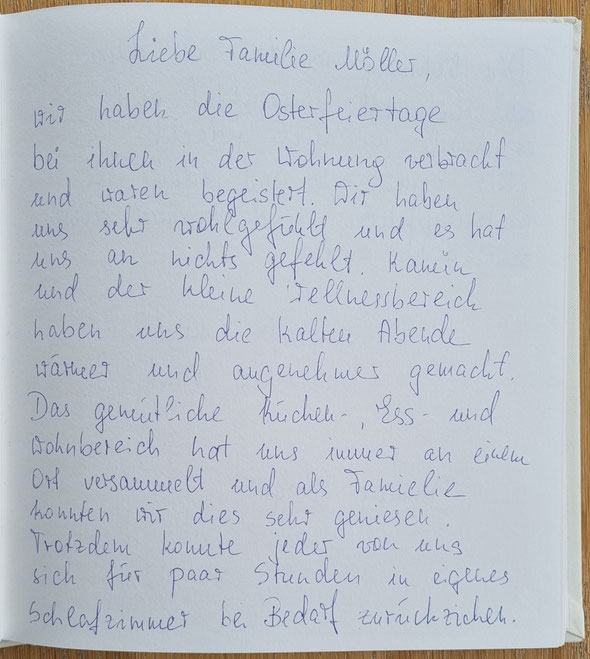 Liebe Familie Möller,
wir haben die Osterfeiertage
bei ihnen in der Wohnung verbracht
und waren begeistert. Wir haben
uns sehr wohlgefühlt und es hat
uns an nichts gefehlt. Kamin
und der kleine Wellnessbereich
haben uns die kalten Abende
wärmer und angenehmer gemacht.
Das gemütliche Küchen-, Ess- und
Wohnbereich hat uns immer an einem
Ort versammelt und als Famielie
konnten wir dies sehr geniesen.
Trotzdem konnte jeder von uns
sich für paar Stunden in eigenes
Schlafzimmer bei Bedarf zurückziehen.